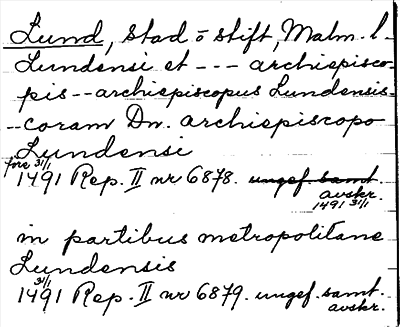 Lund, stad o stift, Malm. l.
Lundensi et --- archiepisco-
pis -- archiepiscopus Lundensis-
-- coram Dn. archiepiscopo
Lundensi
före 31/1
1491 Rep. II nr 6878. ungef. samt.
avskr.
1491 31/1
in partibus metropolitane
Lundensis
31/1
1491 Rep. II nr 6879. ungef. samt.
avskr.